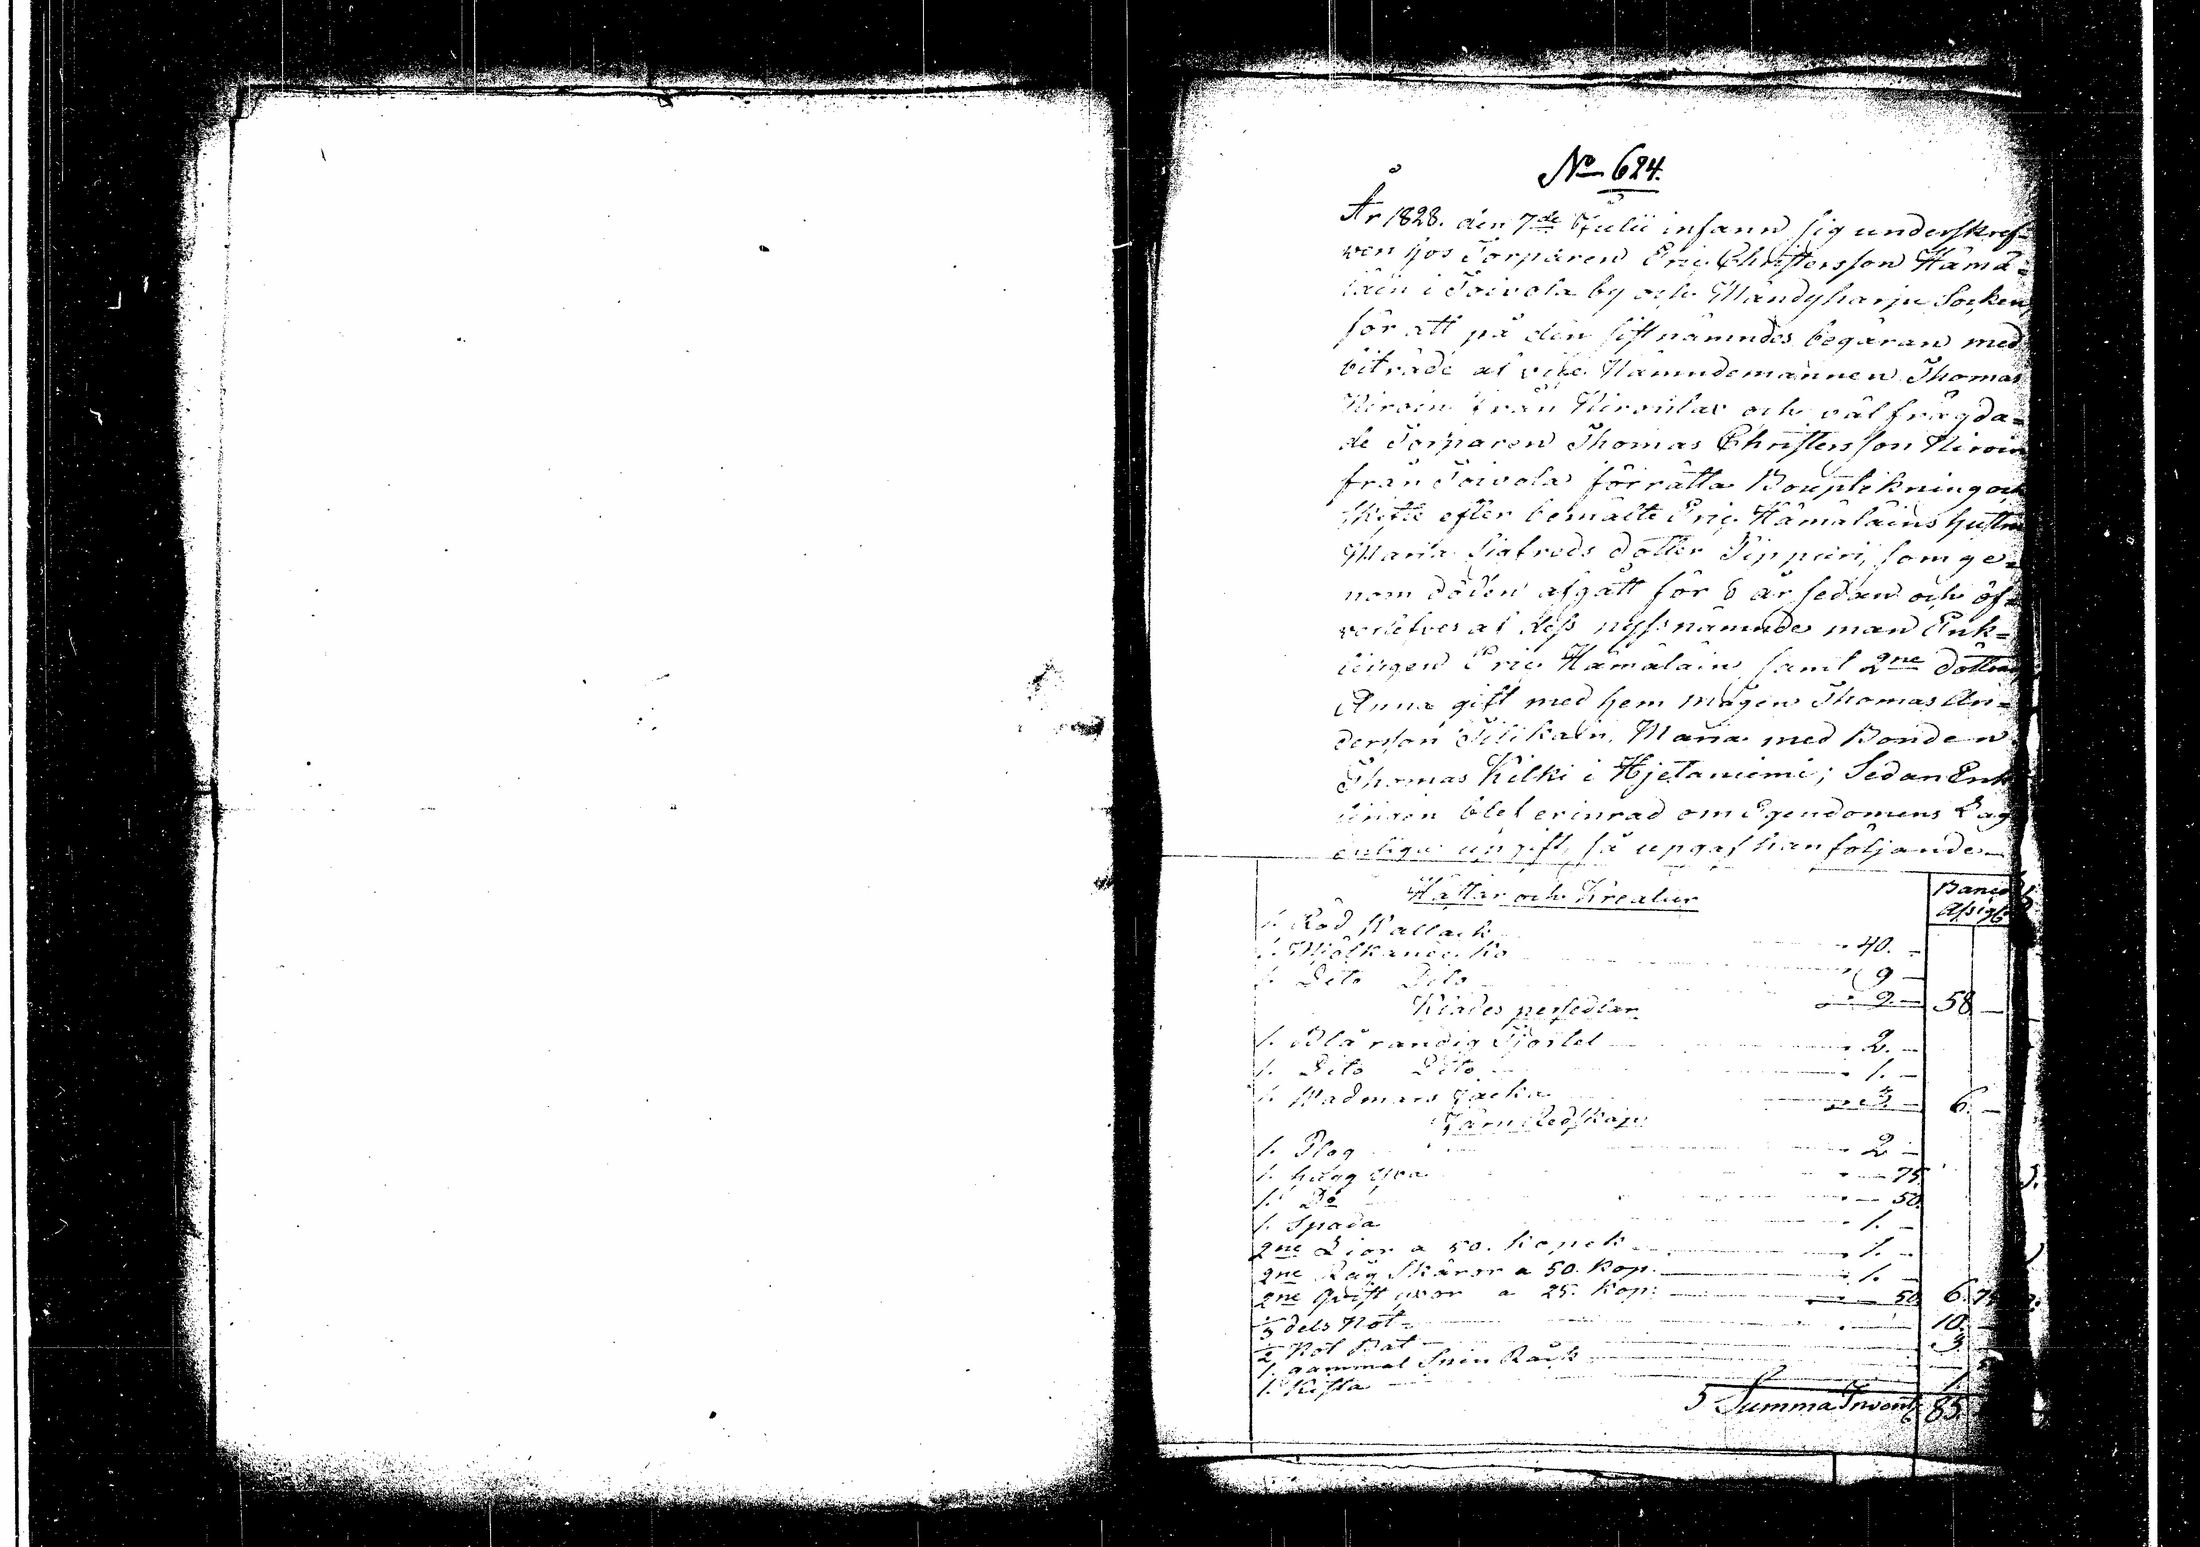 No 624.
År 1828. den 7de Julii infann sig underskref=
ven hos Torparen Eric Christersson Hämä=
läin i Toivola by och Mändyharju Socken,
för att på den sistnämndes begäran med
biträde af vice Nämndemannen Thomas
från och välfrägda=
de Torparen Thomas Christersson
från Toivola förrätta Bouptekning och
Skifte efter bemälte Eric Hämäläins hustru
Maria Sigfreds dotter som ge=
nom döden afgått för 6 år sedan och öf=
verlefves af dess nyssnämnde man Enk=
lingen Eric Hämäläin, samt 2ne döttrar
Anna gift med hem mågen Thomas An=
dersson Tilikain, Maria med Bonden
Thomas Kilki i Hjetaniemi; Sedan Enk
lingen blef erinrad om Egendomens Lag
enliga upgift, så upgaf han följande
Hästar och Kreatur
Banco
Assigt
1. Röd Wallack 40. —
1. Mjölkande Ko 9 —
1. Dito Dito 9 — 58 —
Klädes persedlar
1. Blå randig Tjortel 2. —
1. Dito Dito 1. —
1. Wadmars Jacka 3 — 6. —
Järn Redskap
1. Plog 2 —
1. hugg yxa — 75
1. Do — 50.
1. Spada 1. —
2ne Liar a 50. kopek 1. —
2ne Råg Skäror a 50. Kop. 1. —
2ne a 25. Kop: — 50. 6. 75
1/3 dels Not 10. —
1/2 Not Båt 3
1. gammal Råck
1. Kista 1.
5 Summa Invent. 85.